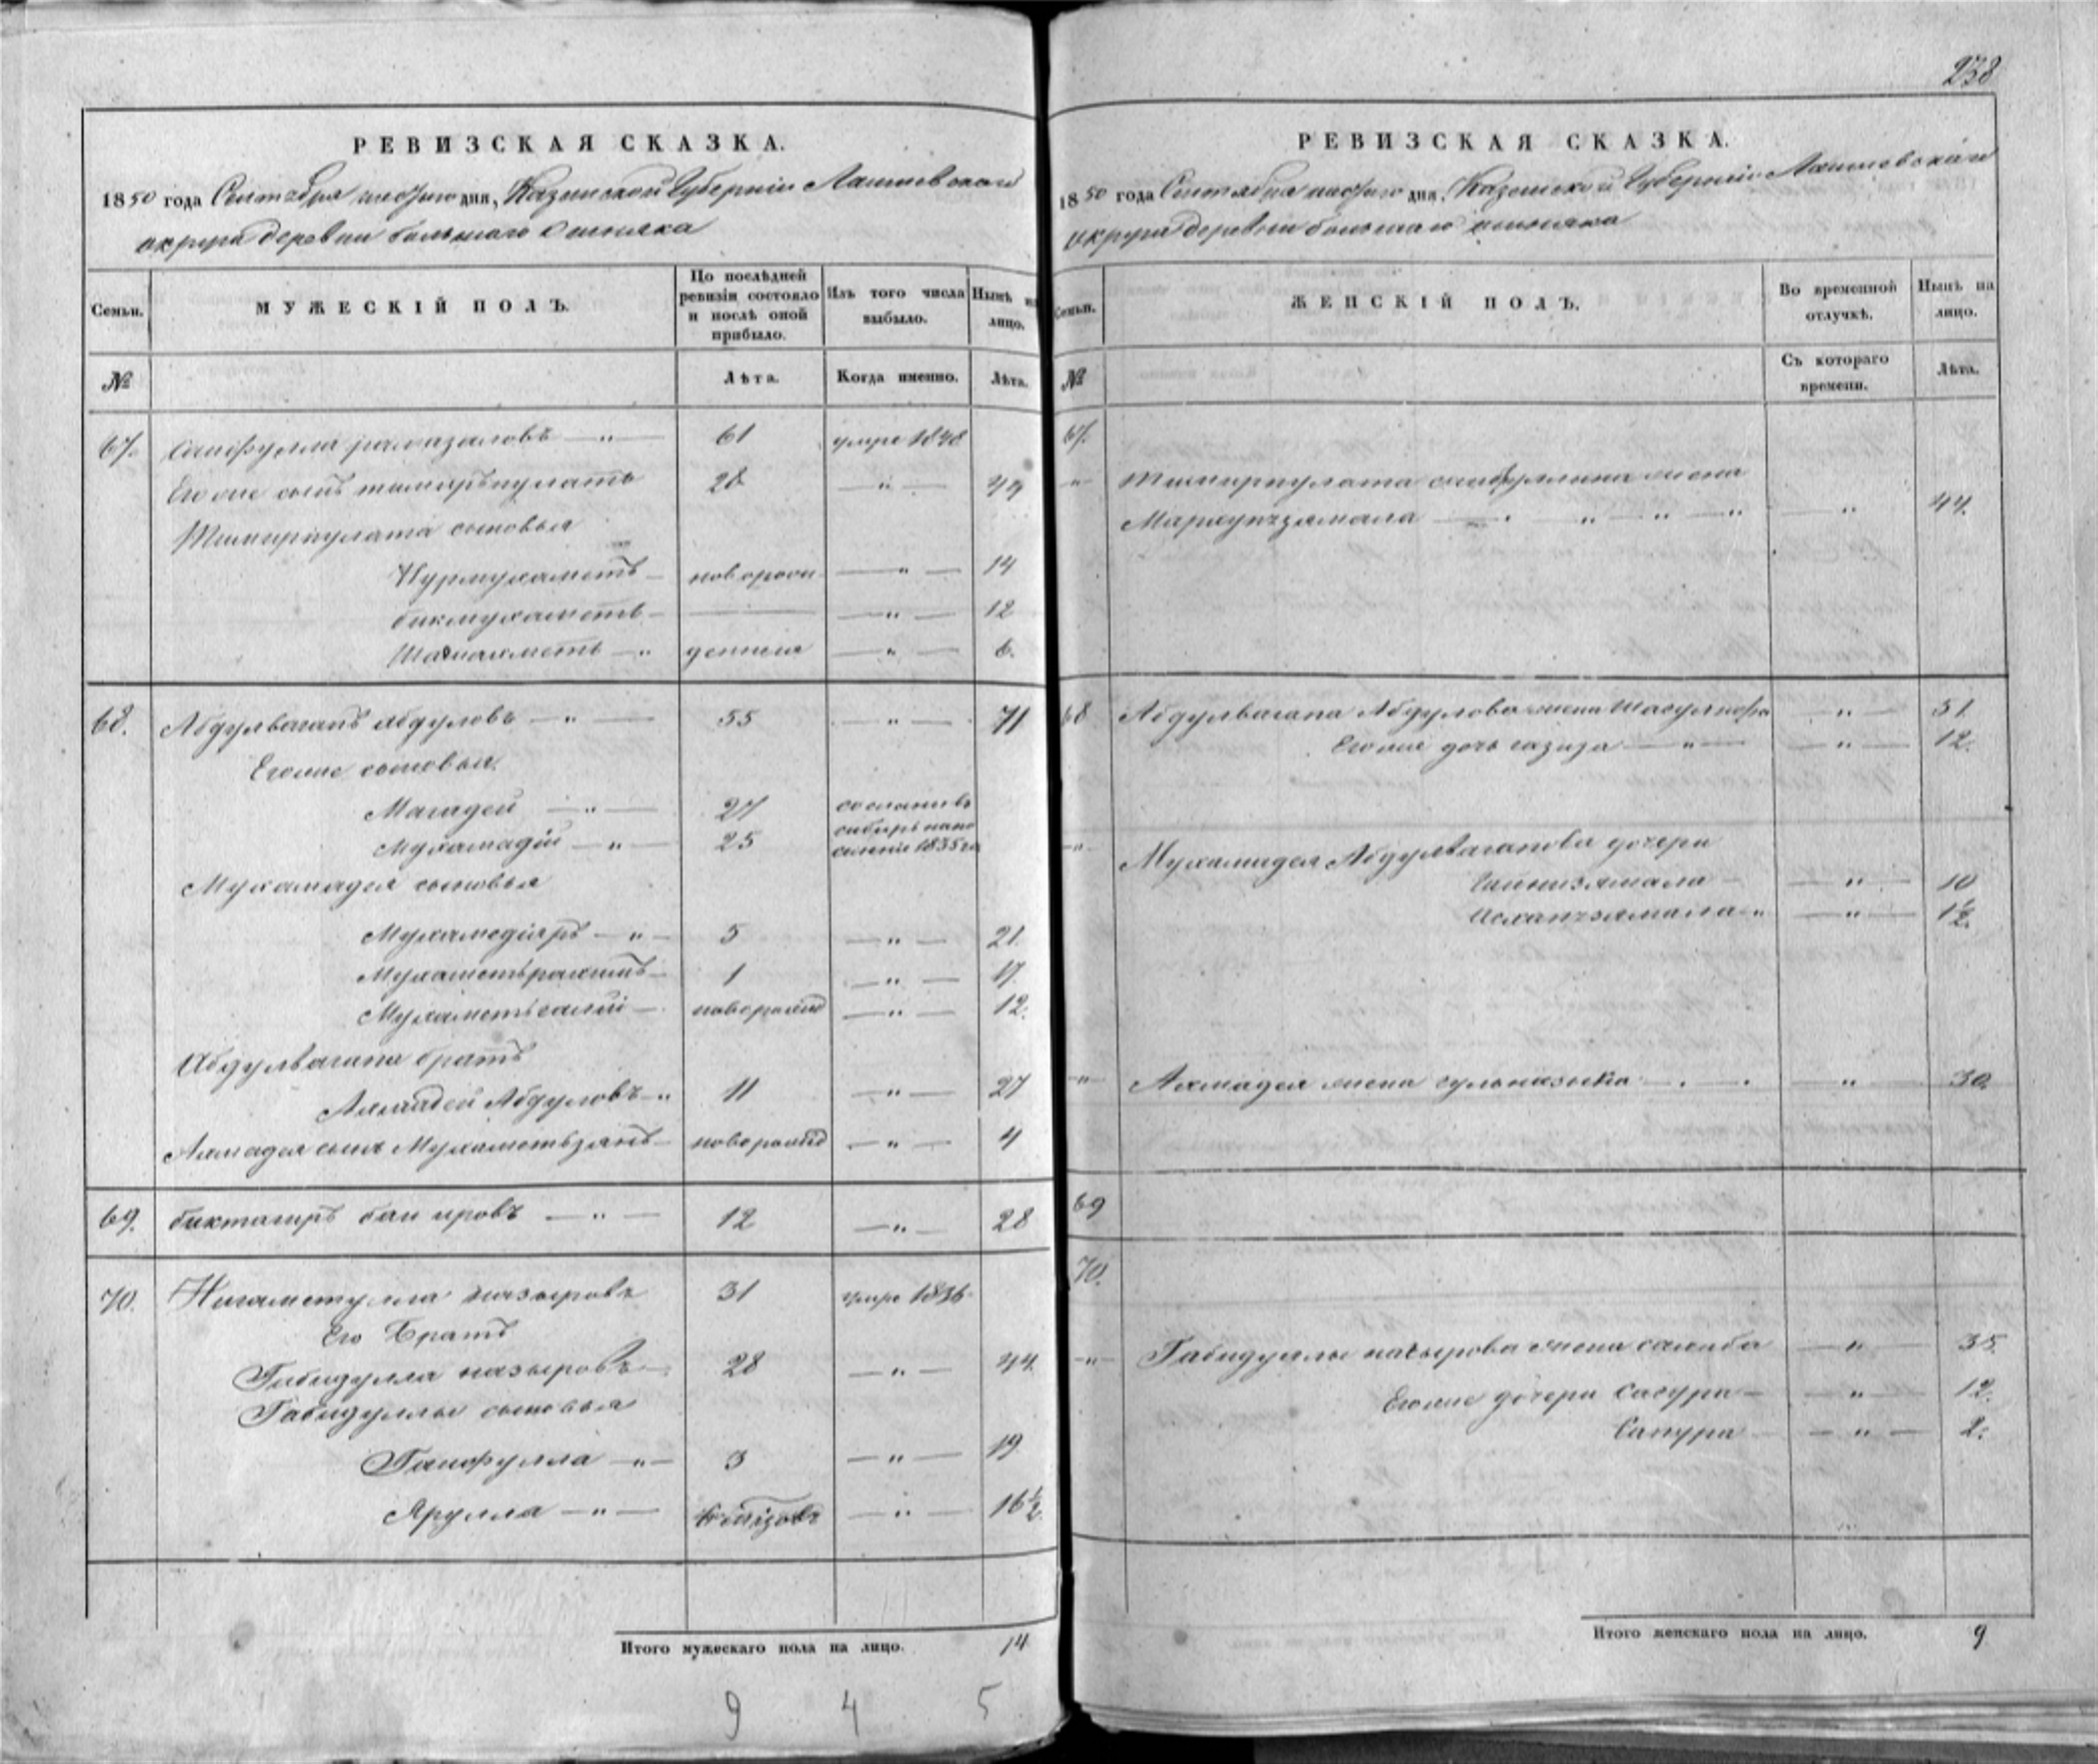 238
РЕВИЗСКАЯ СКАЗКА.
1850 года Сентября дня, Казанской Губерніи Лаишевскаго
округа деревни большаго
Семьи.
МУЖЕСКІЙ ПОЛЪ.
По послѣдней ревизіи состояло и послѣ оной прибыло.
Изъ того числа выбыло.
Нынѣ на лицо.
№
Лѣта.
Когда именно.
Лѣта.
67. Сайфулла рамазановъ — " — 61 умре 1848
Его же сынъ тимиръпулатъ 28 — " — 44
Тимирпулата сыновья
Нурмухаметъ — новорож — " — 14
бикмухаметъ — — " — 12
Шаиахметъ — " денныя — " — 6.
68. Абдулвагапъ абдуловъ — " — 55 — " — 71
Его же сыновья
Магадей — " — 27 сосланы въ
Мухамадій — " — 25 сибирь на по
селеніе 1835 го
Мухамадея сыновья
Мухамедіяръ — " — 5 — " — 21.
Мухаметьрахимъ — 1 — " — 17.
Мухаметьгалій — новорожд — " — 12.
Абдулвагапа братъ
Ахмадей Абдуловъ — " 11 — " — 27
Ахмадея сынъ Мухаметьзянъ — новорожд — " — 4
69. биктагиръ баишровъ — " — 12 — " — 28
70. Нигаметулла назыровъ 31 умре 1836
Его Братъ
Габидулла назыровъ — 28 — " — 44
Габидуллы сыновья
Ганфулла — " — 3 — " — 19
Ярулла — " — — " — 16 1/2.
Итого мужескаго пола на лицо. 14
9 4 5
РЕВИЗСКАЯ СКАЗКА.
1850 года Сентября дня, Казанской Губерніи Лаишевскаго
округа деревни большаго
Семьи.
ЖЕНСКІЙ ПОЛЪ.
Во временной отлучкѣ.
Нынѣ на лицо.
№
Съ котораго времени.
Лѣта.
67.
" Тимирпулата сайфуллина жена
Марфугъзямала — " — " — " — " 44.
68 Абдулвагапа Абдулова жена — " — 51.
Его же дочь газиза — " — — " — 12.
" Мухамадея Абдулвагапова дочери
Гайнизямала — — " — 10
Асханъзямала " — " — 1 1/2.
" Ахмадея жена — " 30.
69
70.
" Габидуллы назырова жена салиба — " — 35.
Его же дочери Сагура — — " — 12.
Сапура — — " — 2.
Итого женскаго пола на лицо. 9